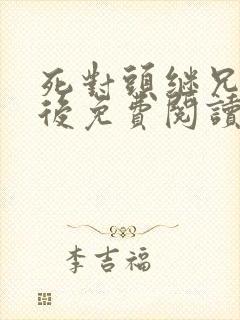 死對頭繼兄
後免費閱讀
李吉福